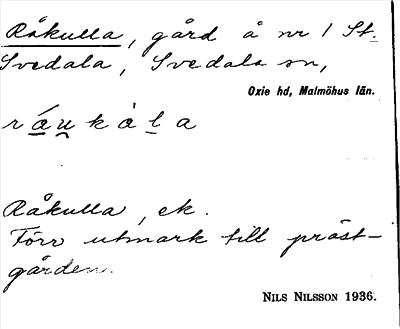 Råkulla, gård å nr 1 St.
Svedala, Svedala sn,
Oxie hd, Malmöhus län.
råukåla
Råkulla, ek.
Förr utmark till präst-
gården.
NILS NILSSON 1936.